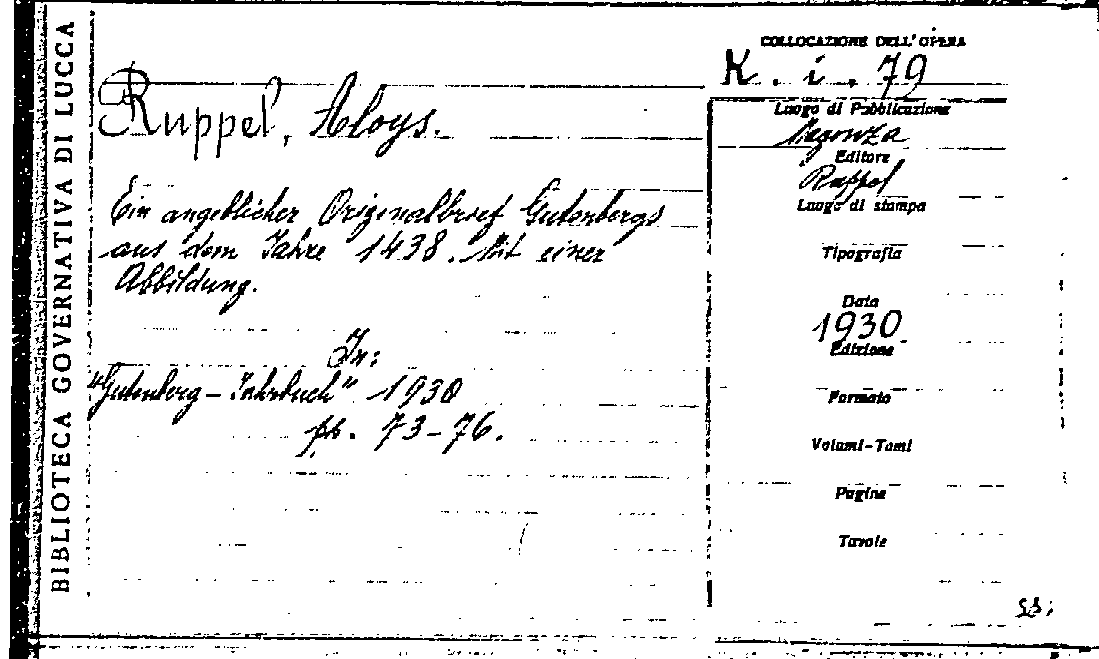 BIBLIOTECA GOVERNATIVA DI LUCCA
COLLOCAZIONE DELL'OPERA
K. i. 79
Ruppel, Aloys.
Luogo di Pubblicazione
Magonza
Editore
Ruppel
Luogo di stampa
Tipografia
Data
1930
Edizione
Formato
Volumi-Tomi
Pagine
Tavole
Ein angeblicher Originalbrief Gutenbergs
aus dem Jahre 1438. Mit einer
Abbildung.
In:
"Gutenberg-Jahrbuch" 1930
pp. 73-76.